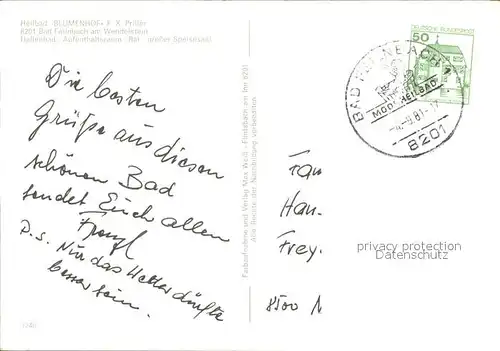 Heilbad »BLUMENHOF« F. X. Priller
8201 Bad Feilnbach am Wendelstein
Hallenbad, Aufenthaltsraum, Bar, großer Speisesaal
Die besten
Grüße aus diesen
schönen Bad
sendet Euch allen
Franzl
P.S. Nur das Wetter dürfte
besser sein.
Alle Rechte der Nachbildung vorbehalten
DEUTSCHE BUNDESPOST
50
BAD FEILNBACH 1
MOORHEILBAD
8201
Fam
Han
Frey
8500 N
privacy protection
Datenschutz